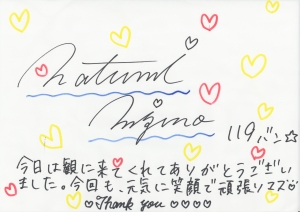 Natumi
Mizuno
119バン☆
今日は観に来てくれてありがとうござい
ました。今回も、元気に笑顔で頑張りマス♡
♡Thank you♡♡♡♡